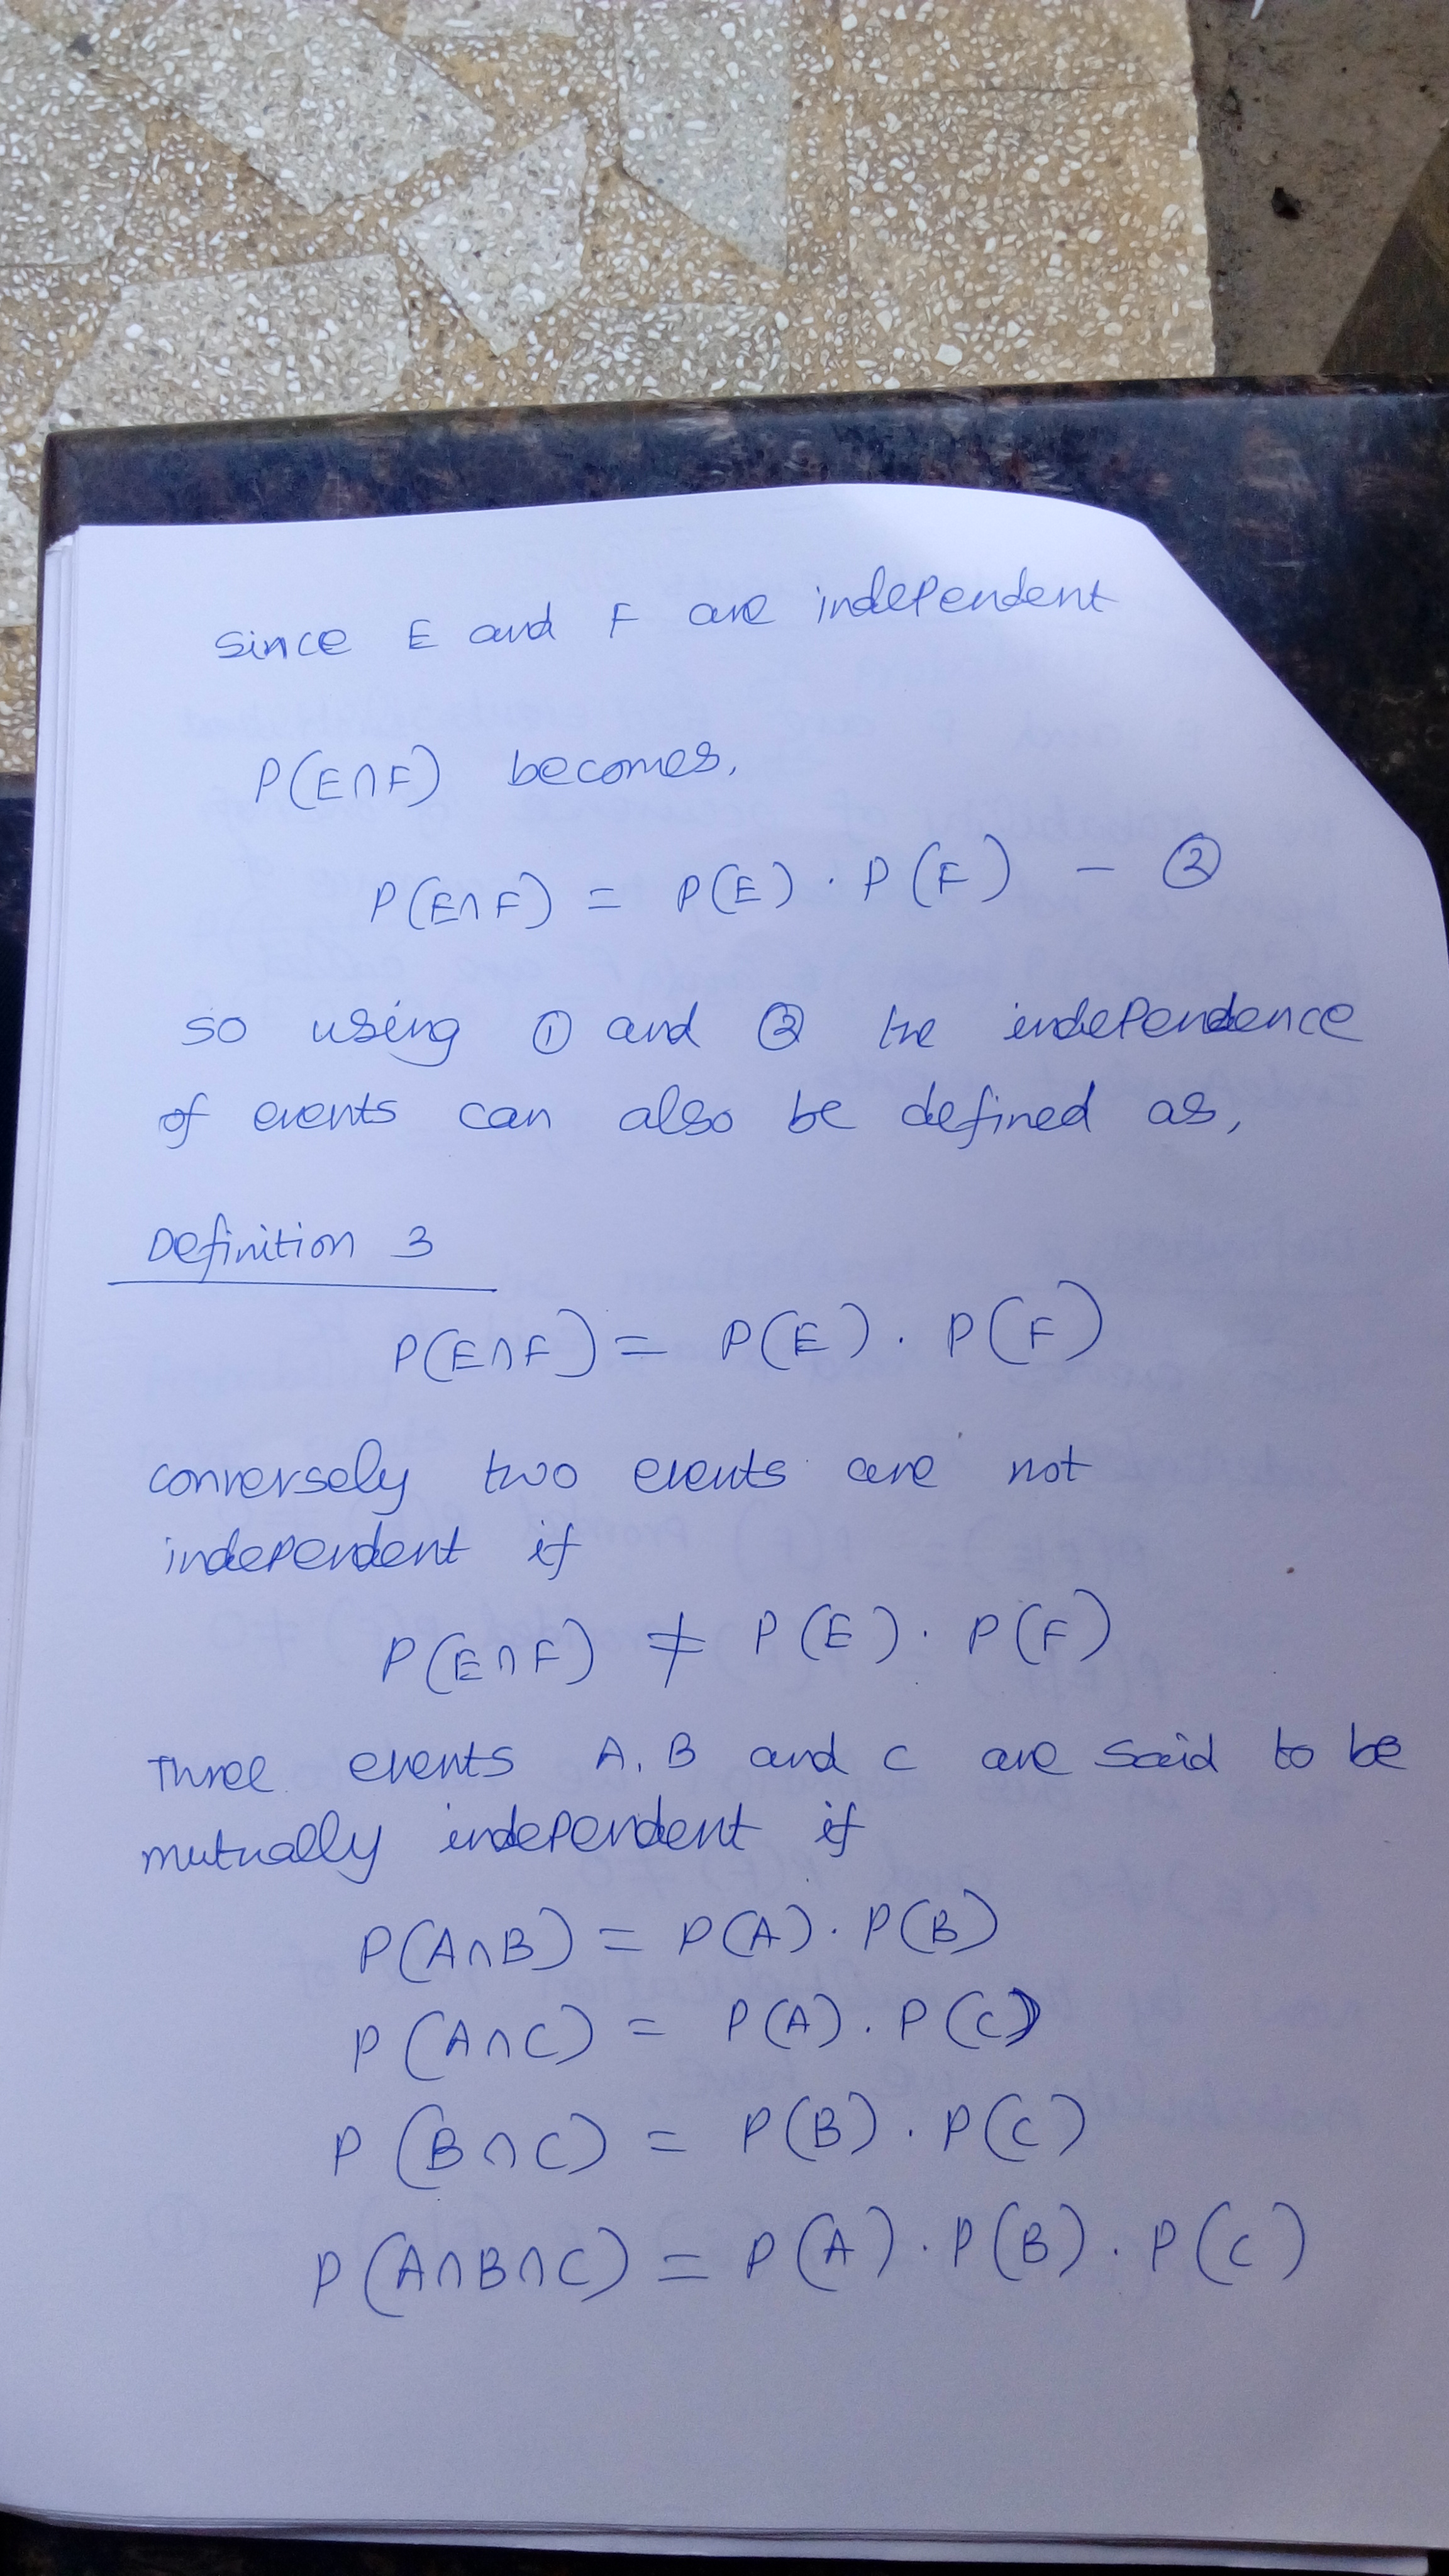 since E and F are independent
P(E∩F) becomes,
P(E∩F) = P(E) . P(F) - ②
so using ① and ② the independence
of events can also be defined as,
Definition 3
P(E∩F) = P(E) . P(F)
conversely two events are not
independent if
P(E∩F) ≠ P(E) . P(F)
Three events A, B and C are said to be
mutually independent if
P(A∩B) = P(A) . P(B)
P(A∩C) = P(A) . P(C)
P(B∩C) = P(B) . P(C)
P(A∩B∩C) = P(A) . P(B) . P(C)